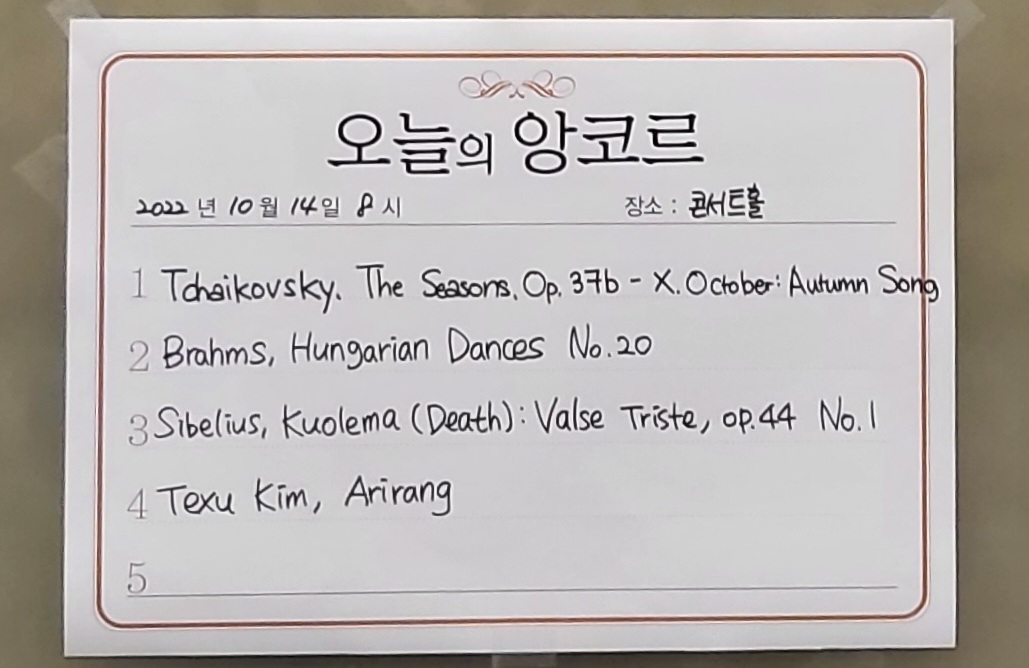 오늘의 앙코르
2022 년 10 월 14 일 8 시 장소 : 콘서트홀
1 Tchaikovsky. The Seasons. Op. 37b - X. October: Autumn Song
2 Brahms, Hungarian Dances No.20
3 Sibelius, Kuolema (Death): Valse Triste, op.44 No.1
4 Texu Kim, Arirang
5